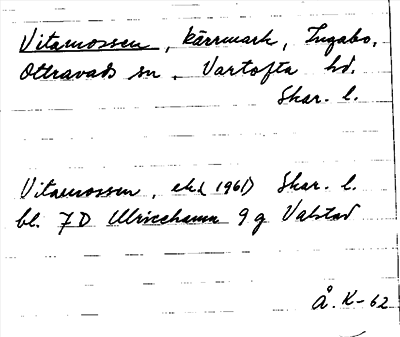 Vitamossen, kärrmark, Ingabo,
Ottravads sn. Vartofta hd.
Skar. l.
Vitamossen, ek. (1961) Skar. l.
bl. 7D Ulricehamn 9 g Valstad
Å. K-62